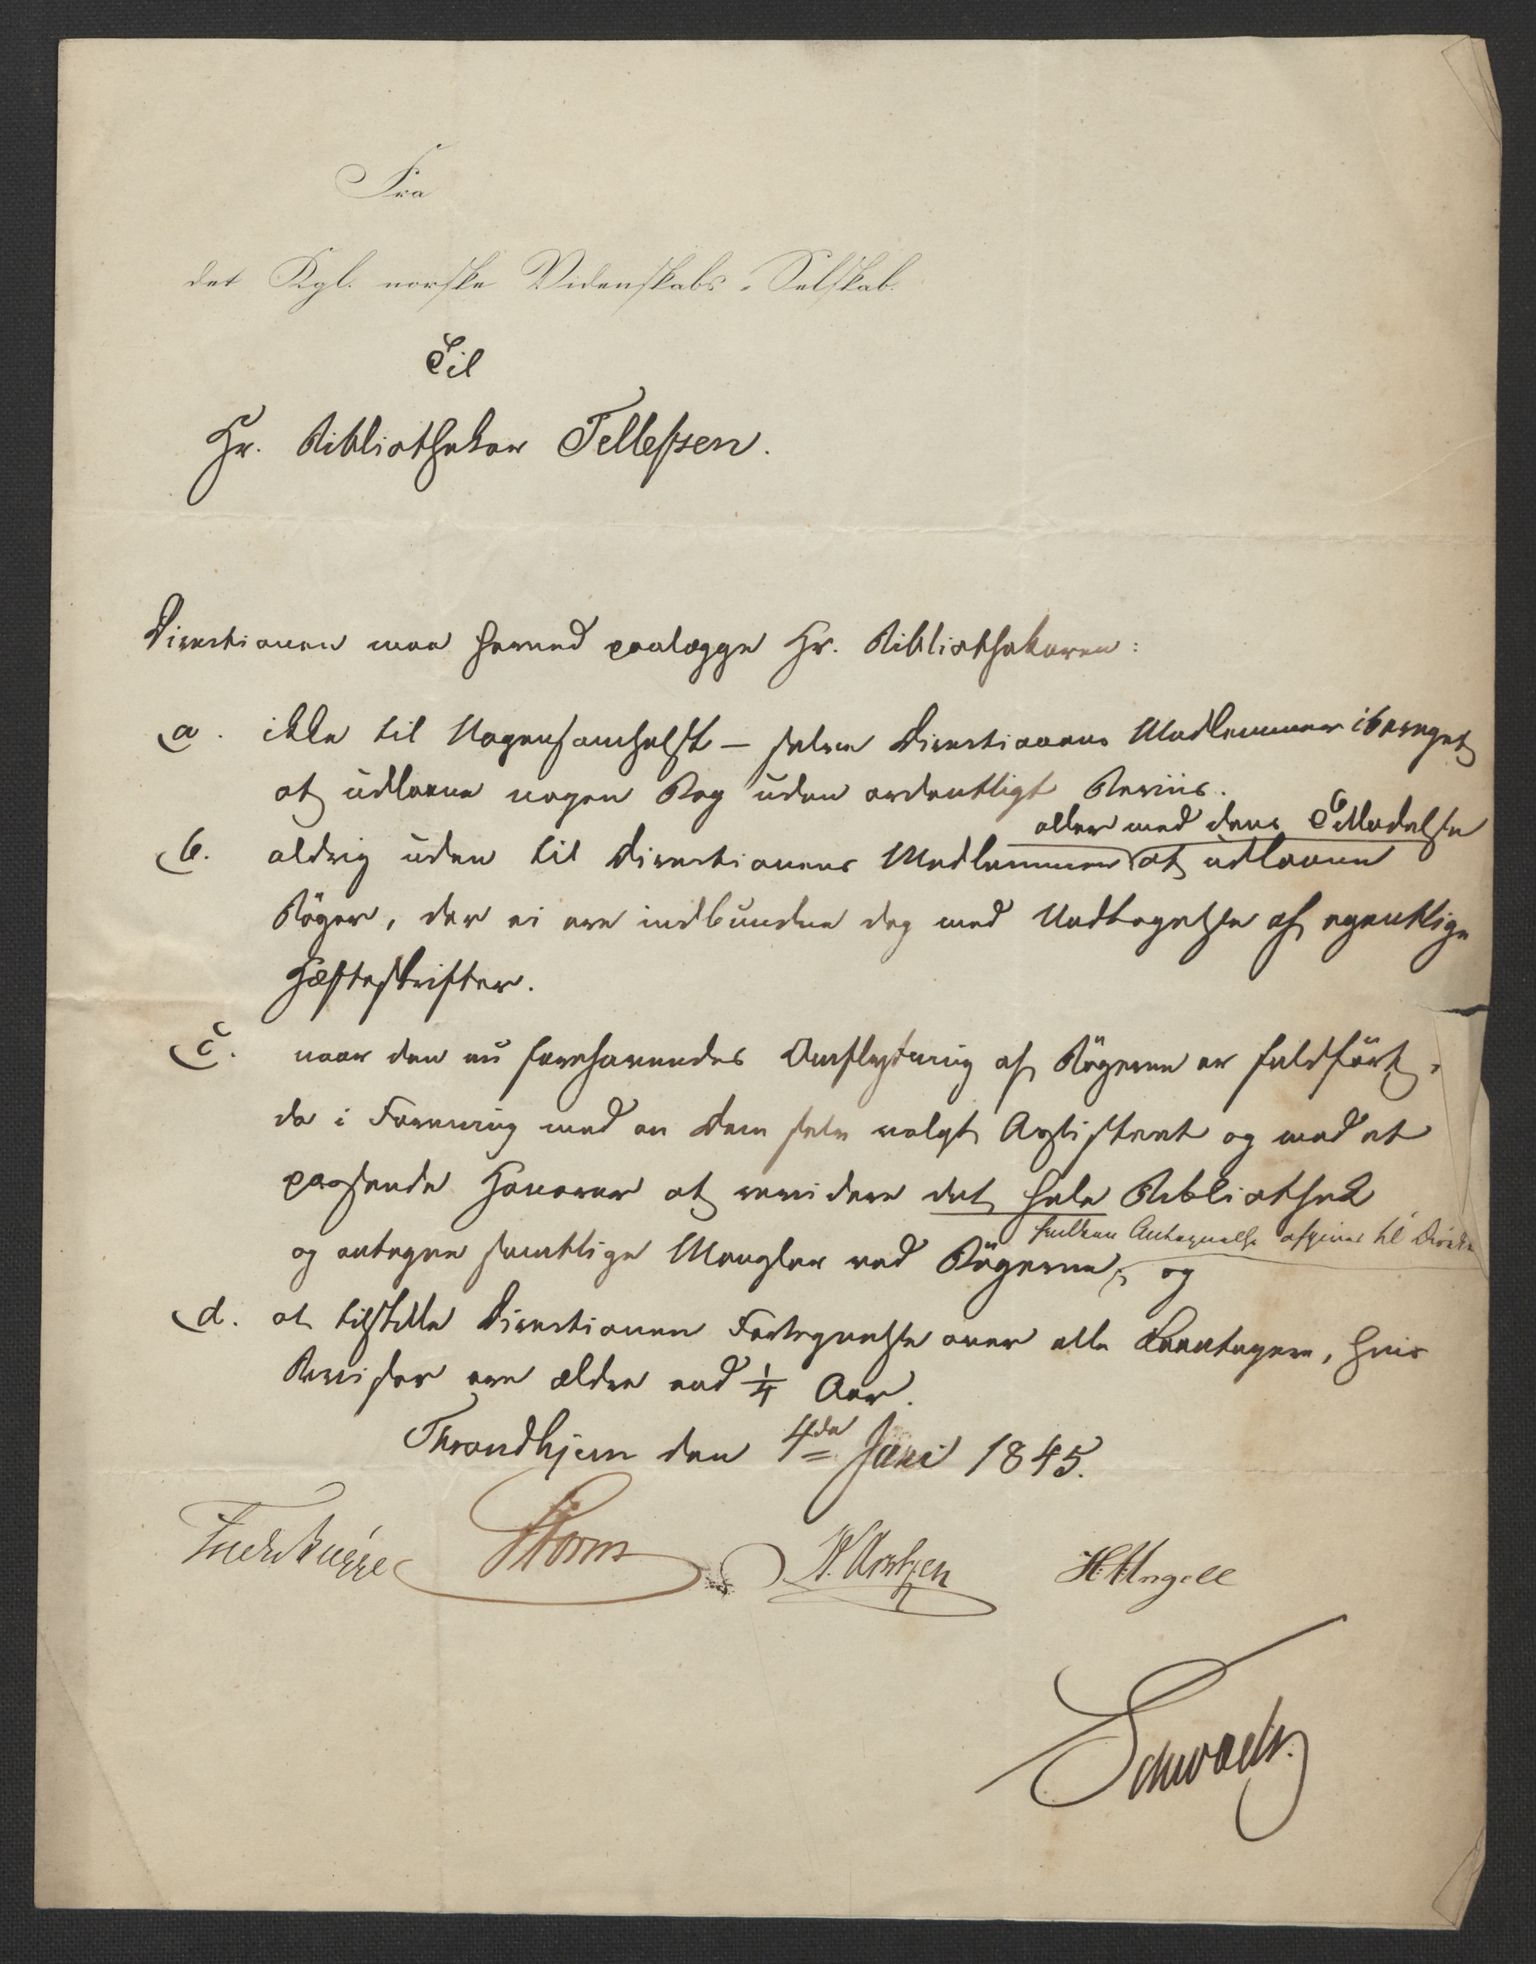 Fra
det Kgl. norske Videnskabs-Selskab.
Til
Hr. Bibliothekar Tellefsen.
Directionen maa herved paalægge Hr. Bibliothekaren:
a. ikke til Nogensomhelst – selve Directionens Medlemmer iberegnet
at udlaane nogen Bog uden ordentligt Beviis.
eller med dens Tilladelse
b. aldrig uden til Directionens Medlemmer at udlaane
Bøger, der ei ere indbundne dog med Undtagelse af egentlige
Hæfteskrifter.
c. naar den nu forehavendes Omflytning af Bøgerne er fuldført,
da i Forening med en dem selv valgt Assistent og med et
passende Honorar at revidere det hele Bibliothek
hvilken Antegnelse afgives til Direkt
og antegne samtlige Mangler ved Bøgerne, og
d. at tilstille Directionen Fortegnelse over alle Laantagere, hvis
Beviser ere ældre end 1/4 Aar.
Throndhjem den 4de Juni 1845.
Fredr Bugge Storm N. Arntzen H Angell
Schwach.